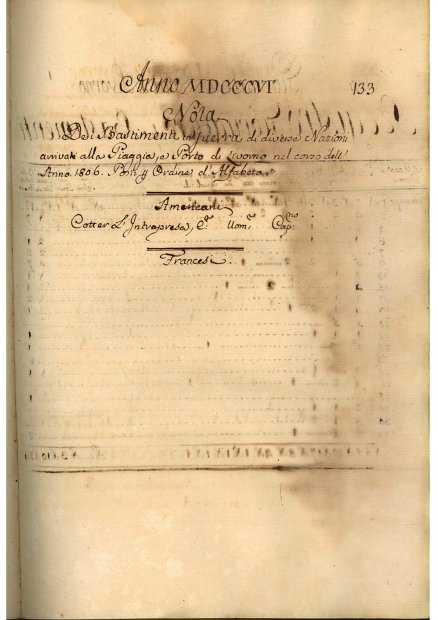 Anno MDCCCVI 133
Nota
De Bastimenti in guerra di diverse Nazioni
arrivati alla Piaggia, e Porto di Livorno nel corso dell'
Anno 1806. Posti Ordine d'Alfabeto
Americani
Cotter L'Intrapresa, Uom. Cap.
Francesi